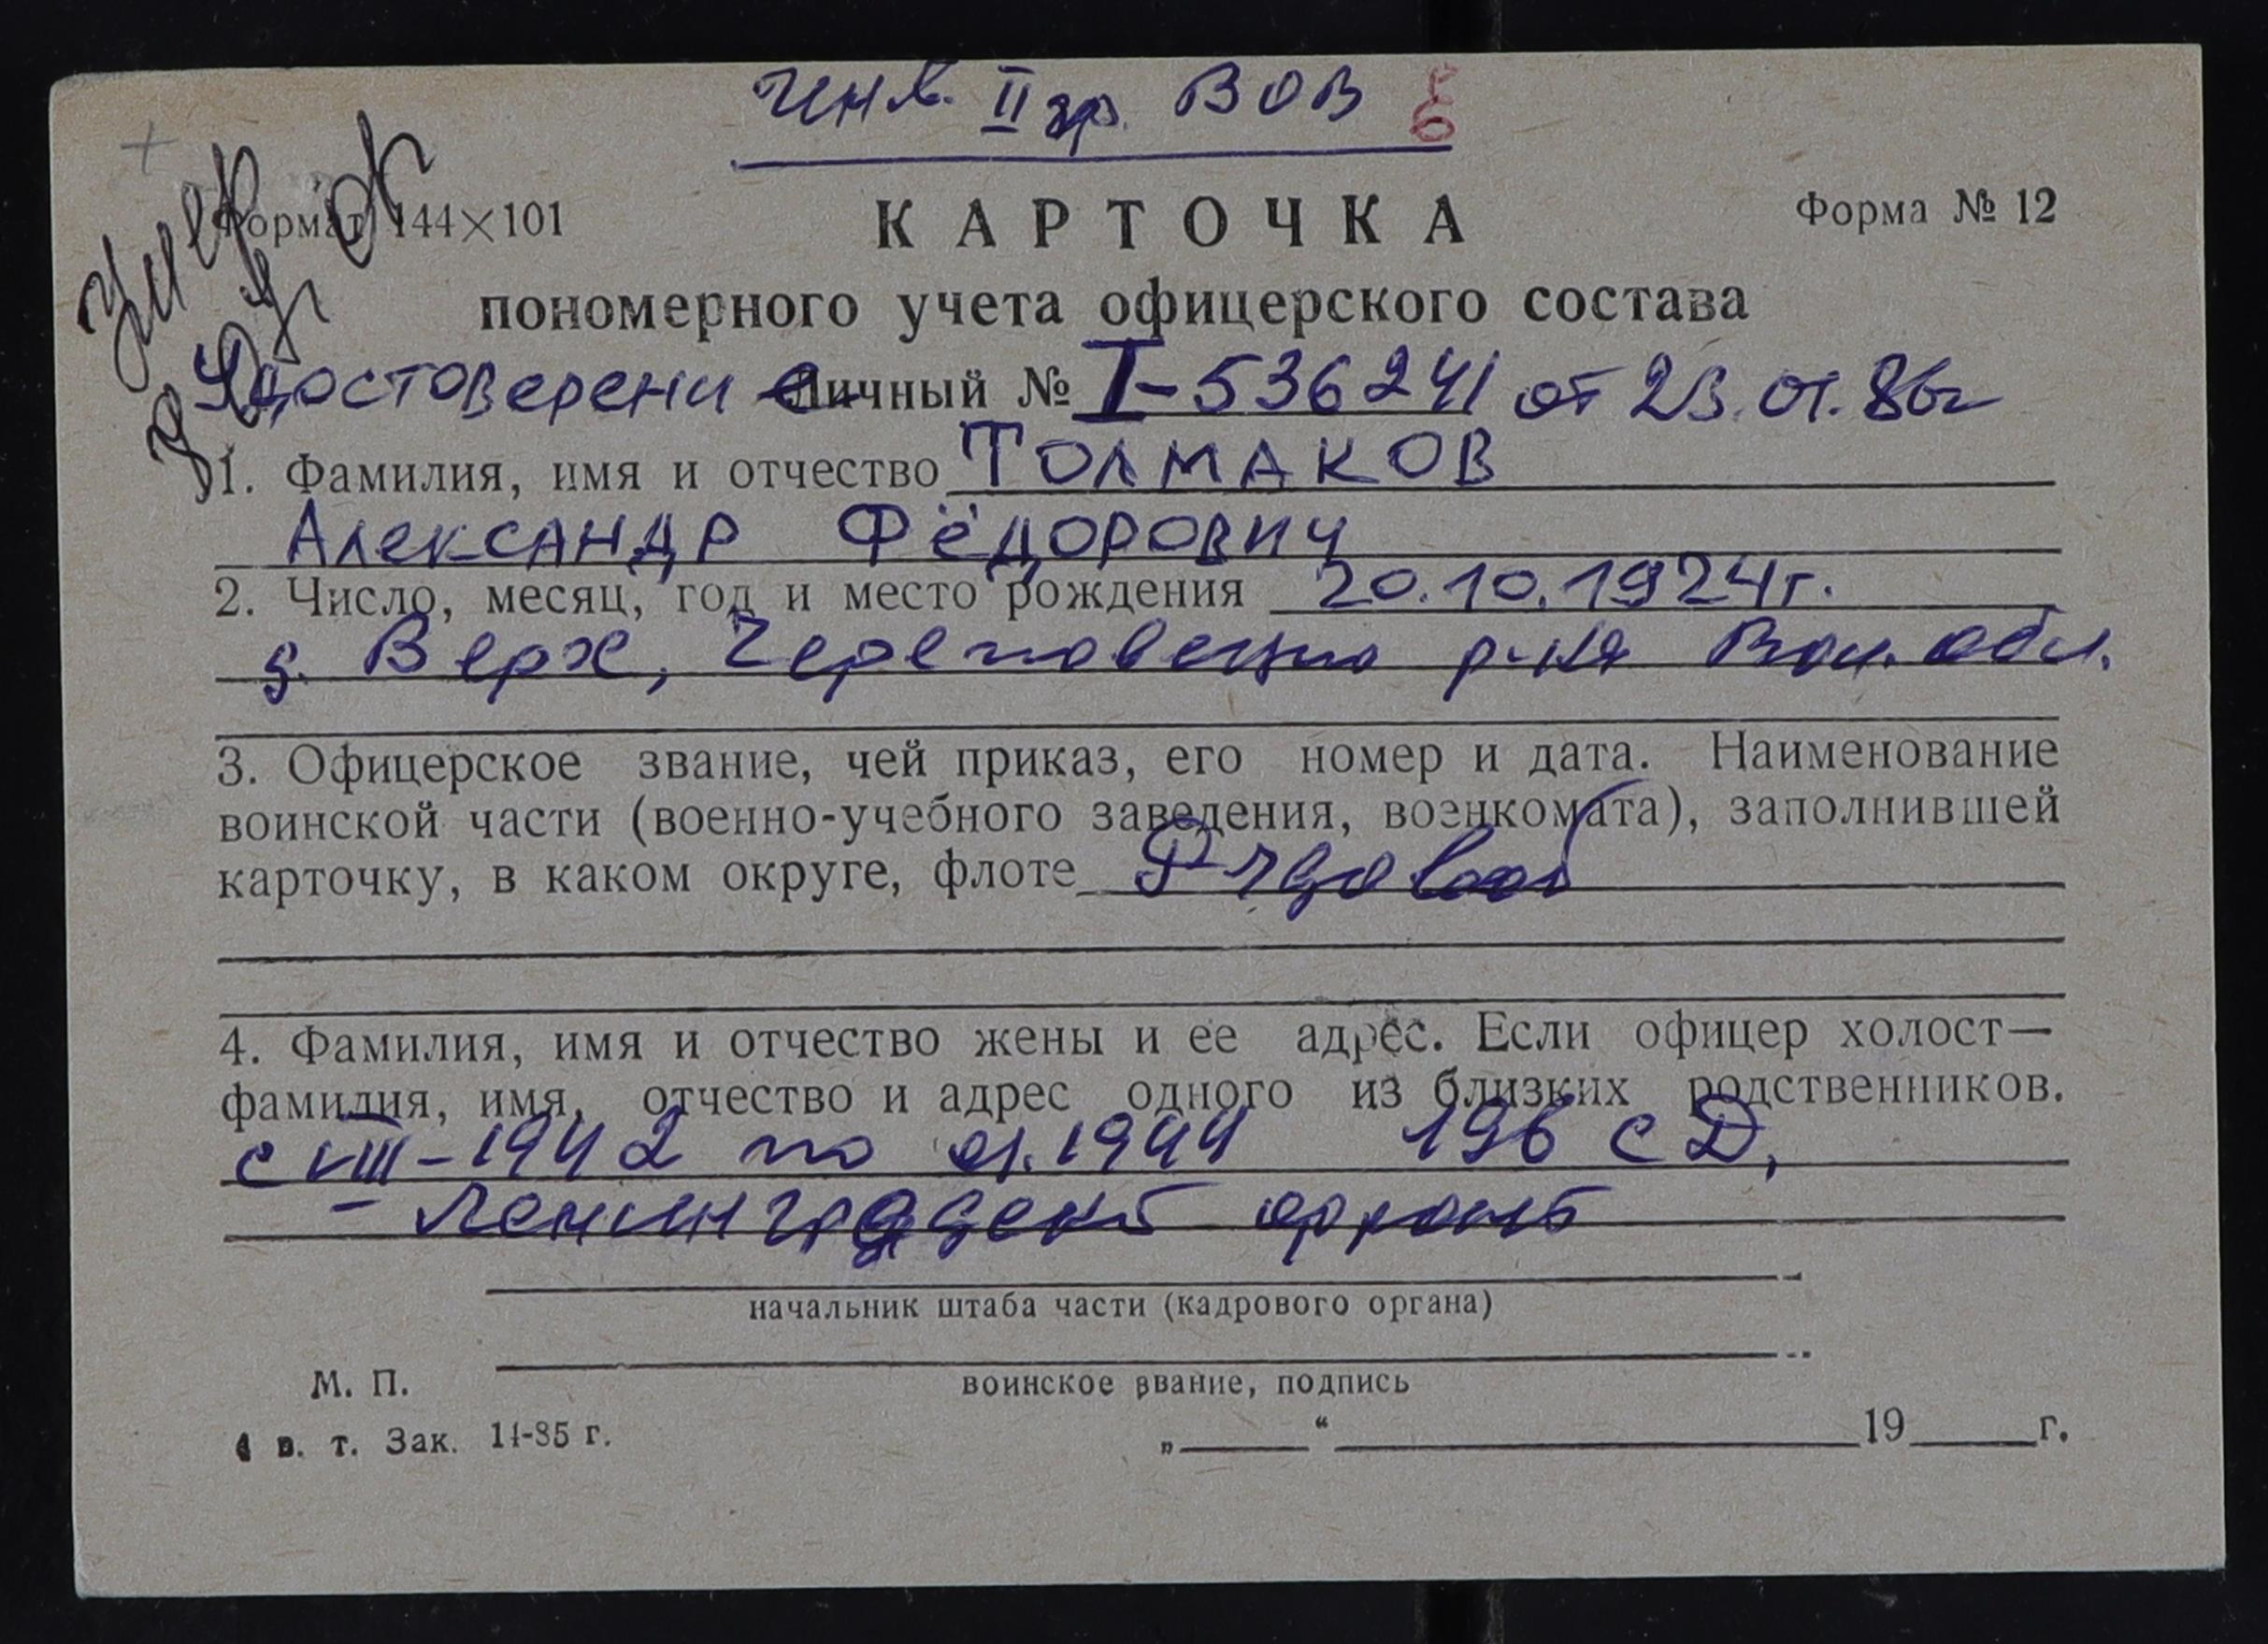 Инв. II гр. ВОВ
Формат 144×101
Форма № 12
КАРТОЧКА
пономерного учета офицерского состава
Удостоверение Личный № I-536241 от 23.01.86г
1. Фамилия, имя и отчество ТОЛМАКОВ
Александр Фёдорович
2. Число, месяц, год и место рождения 20.10.1924г.
д. Верх, Череповецко р-на Вол. обл.
3. Офицерское звание, чей приказ, его номер и дата. Наименование
воинской части (военно-учебного заведения, военкомата), заполнившей
карточку, в каком округе, флоте Рядовой
4. Фамилия, имя и отчество жены и ее адрес. Если офицер холост—
фамилия, имя, отчество и адрес одного из близких родственников.
с VIII-1942 по 01.1944 196 СД,
- Ленинградский фронт
начальник штаба части (кадрового органа)
М. П.
воинское звание, подпись
в. т. Зак. 14-85 г.
„ “ 19 г.